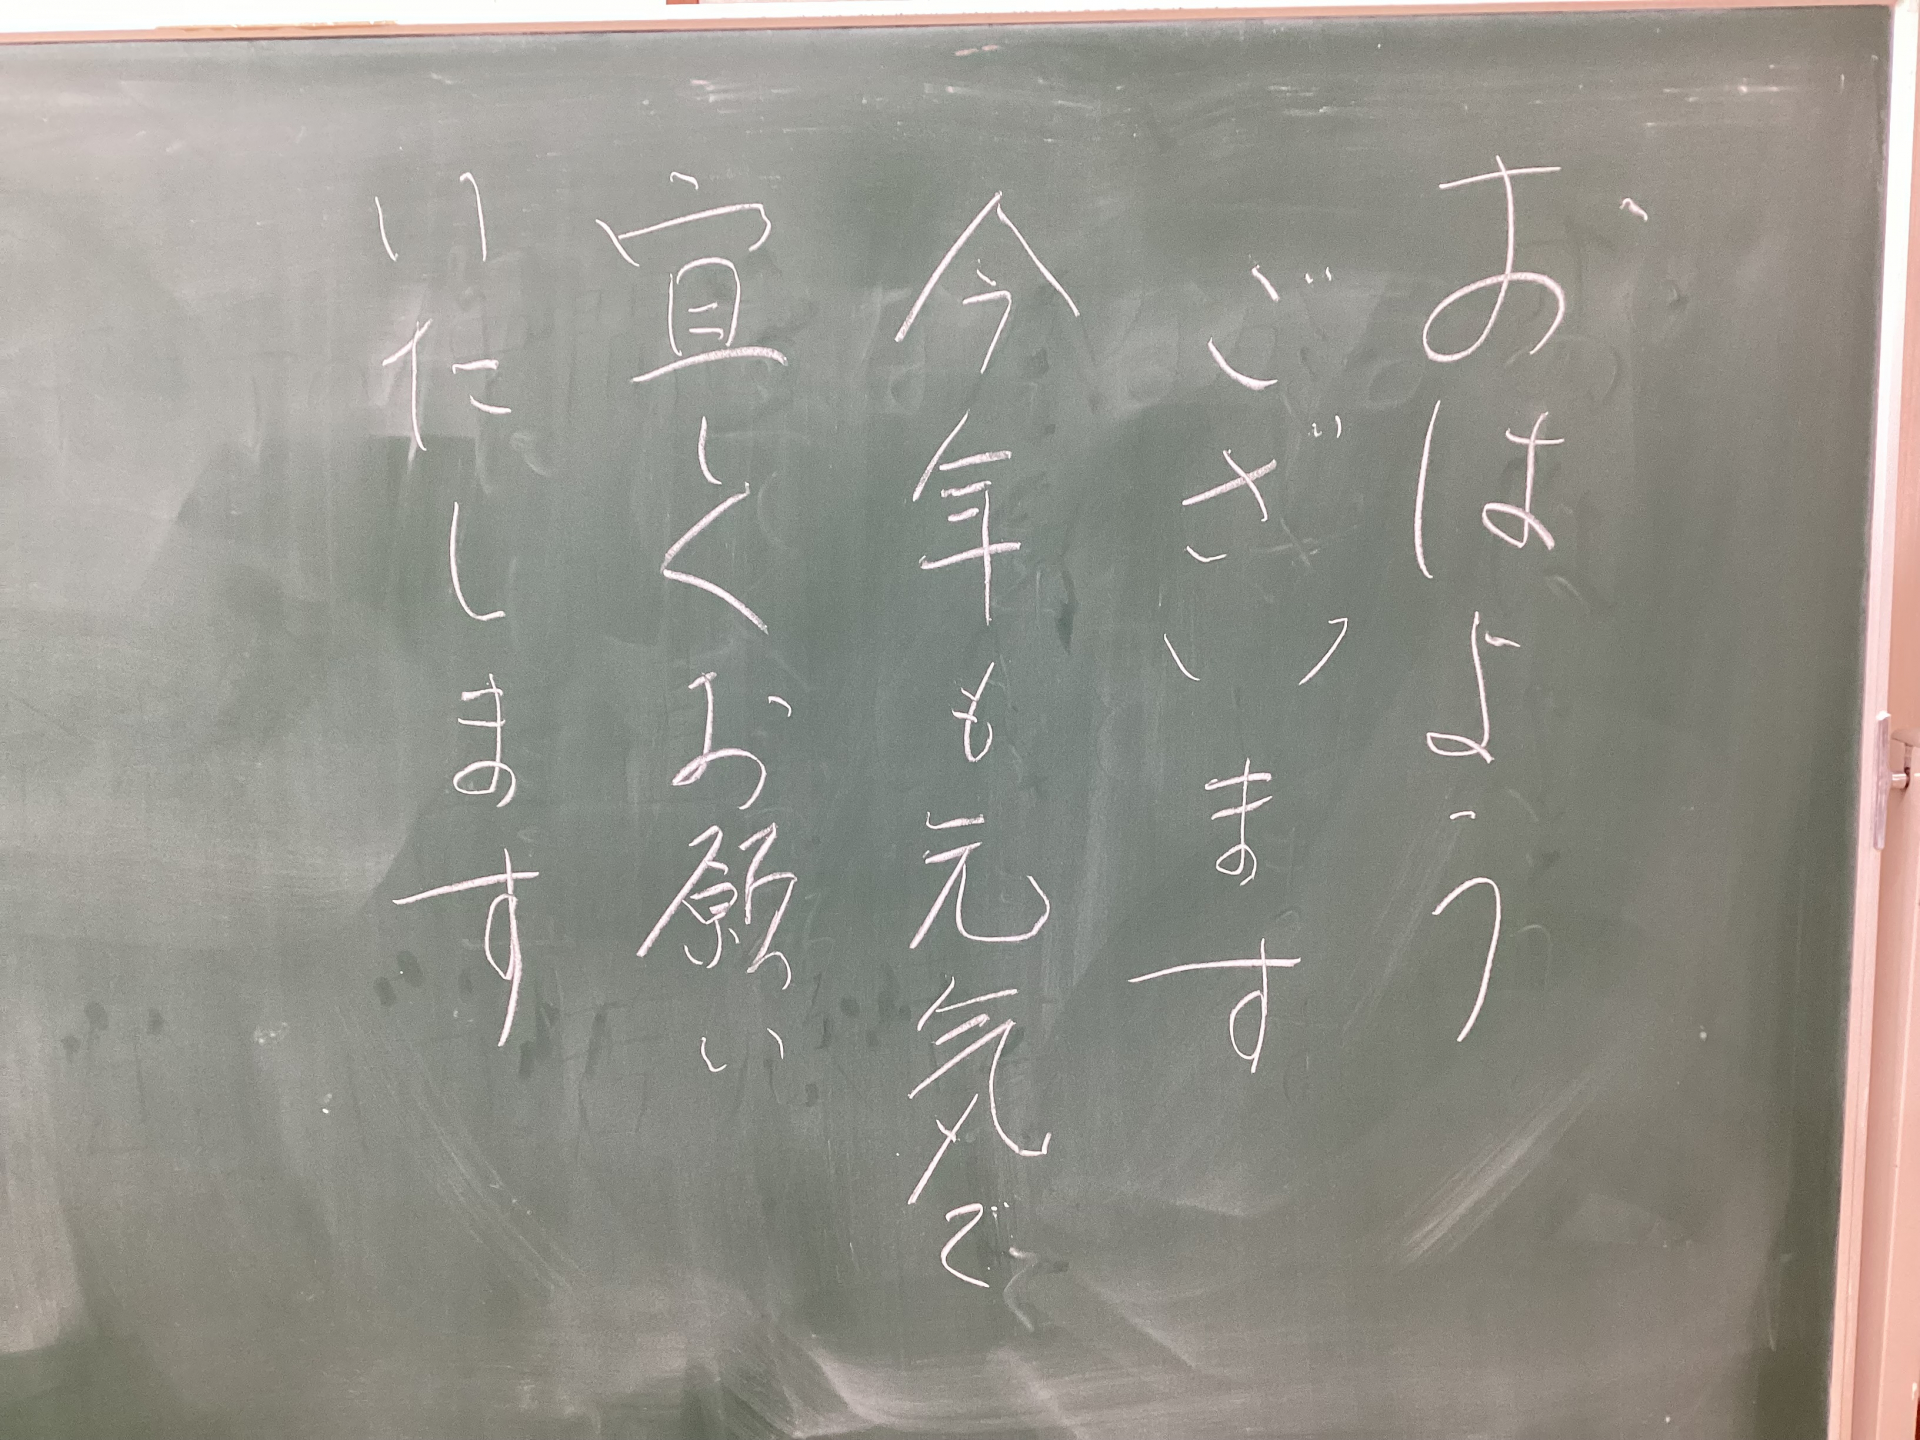 おはよう
ございます
今年も元気で
宜しくお願い
いたします